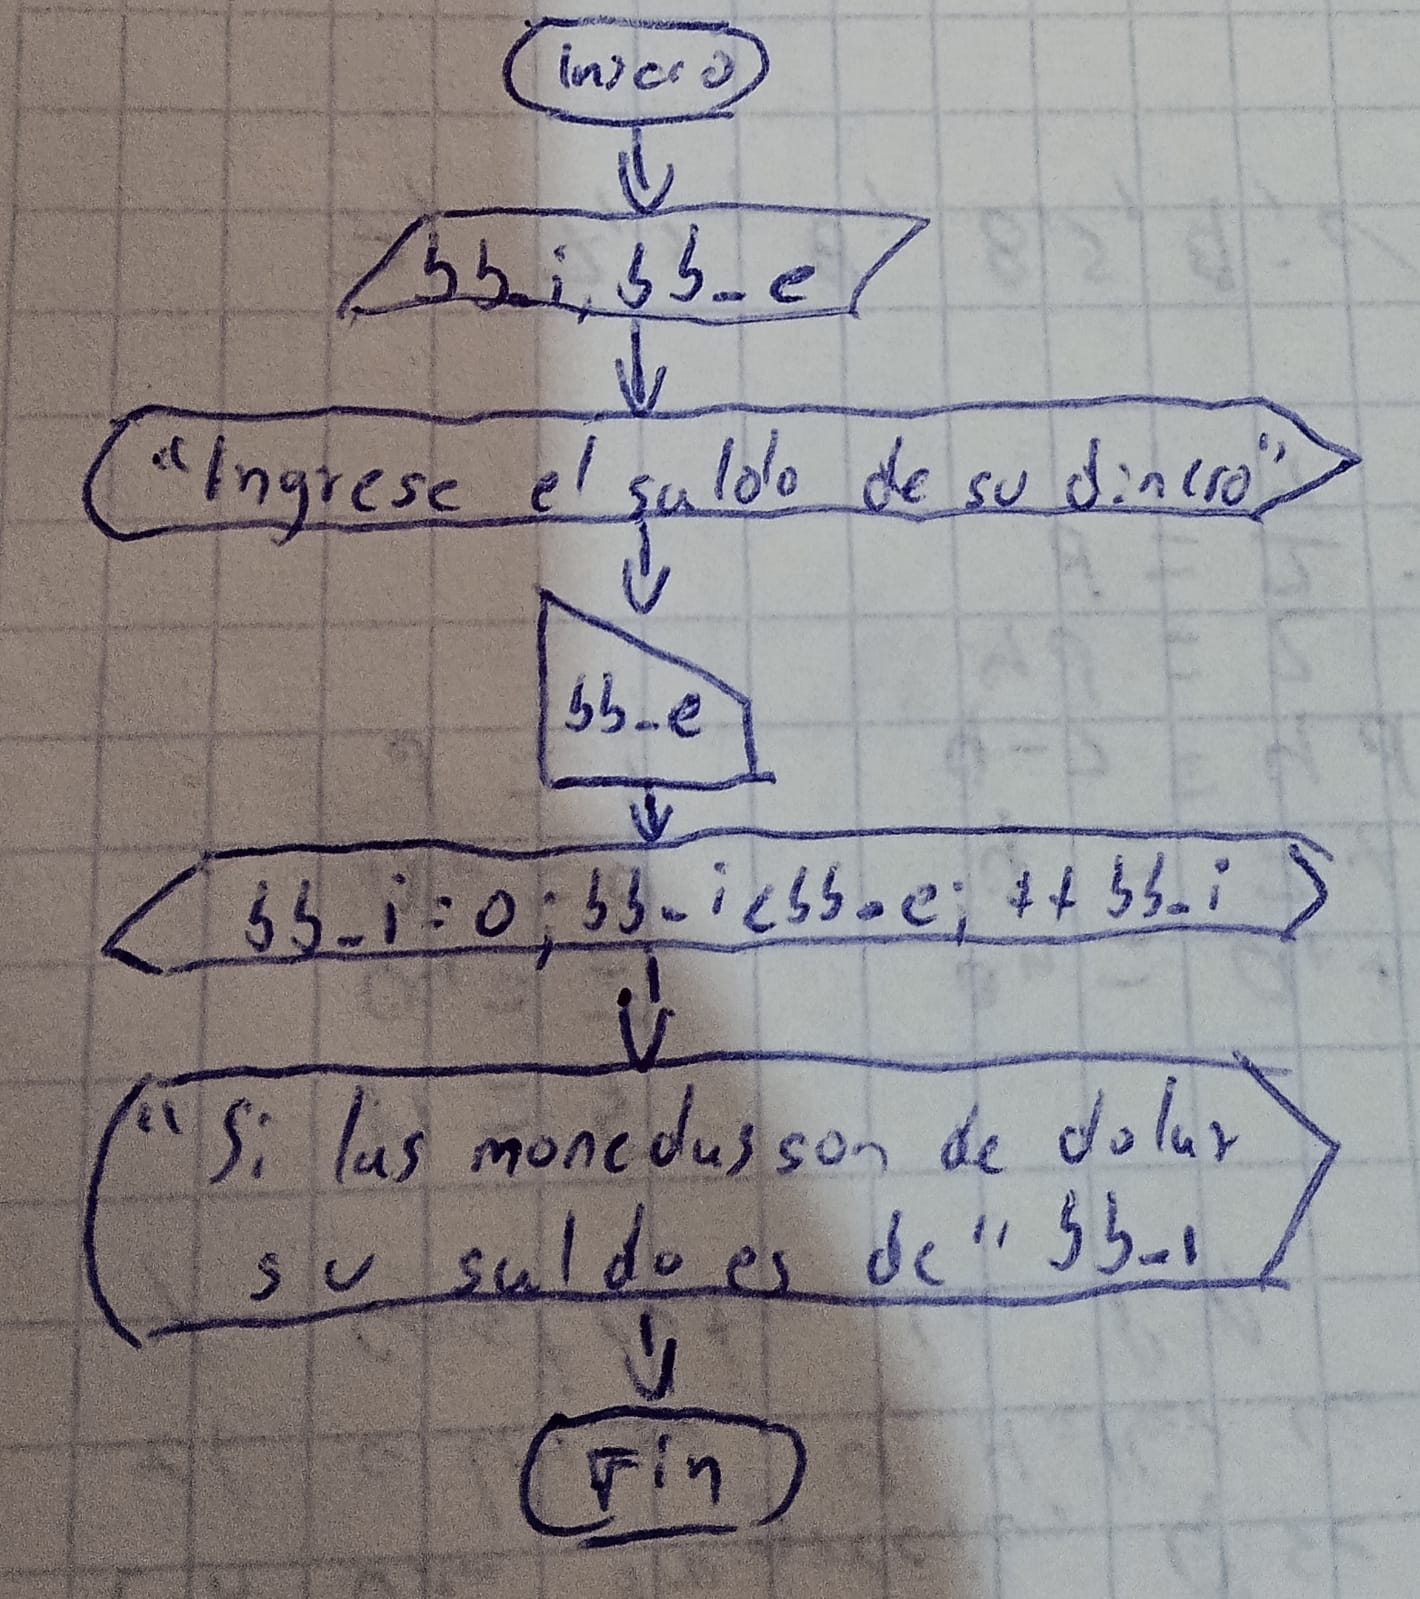 inicio
bb_i, bb_e
"Ingrese el saldo de su dinero"
bb_e
bb_i=0; bb_i<bb_e; ++bb_i
"Si las monedas son de dolar
su saldo es de" bb_i
Fin